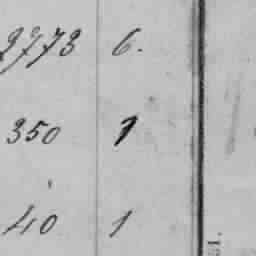 3773 6.
350 1
40 1